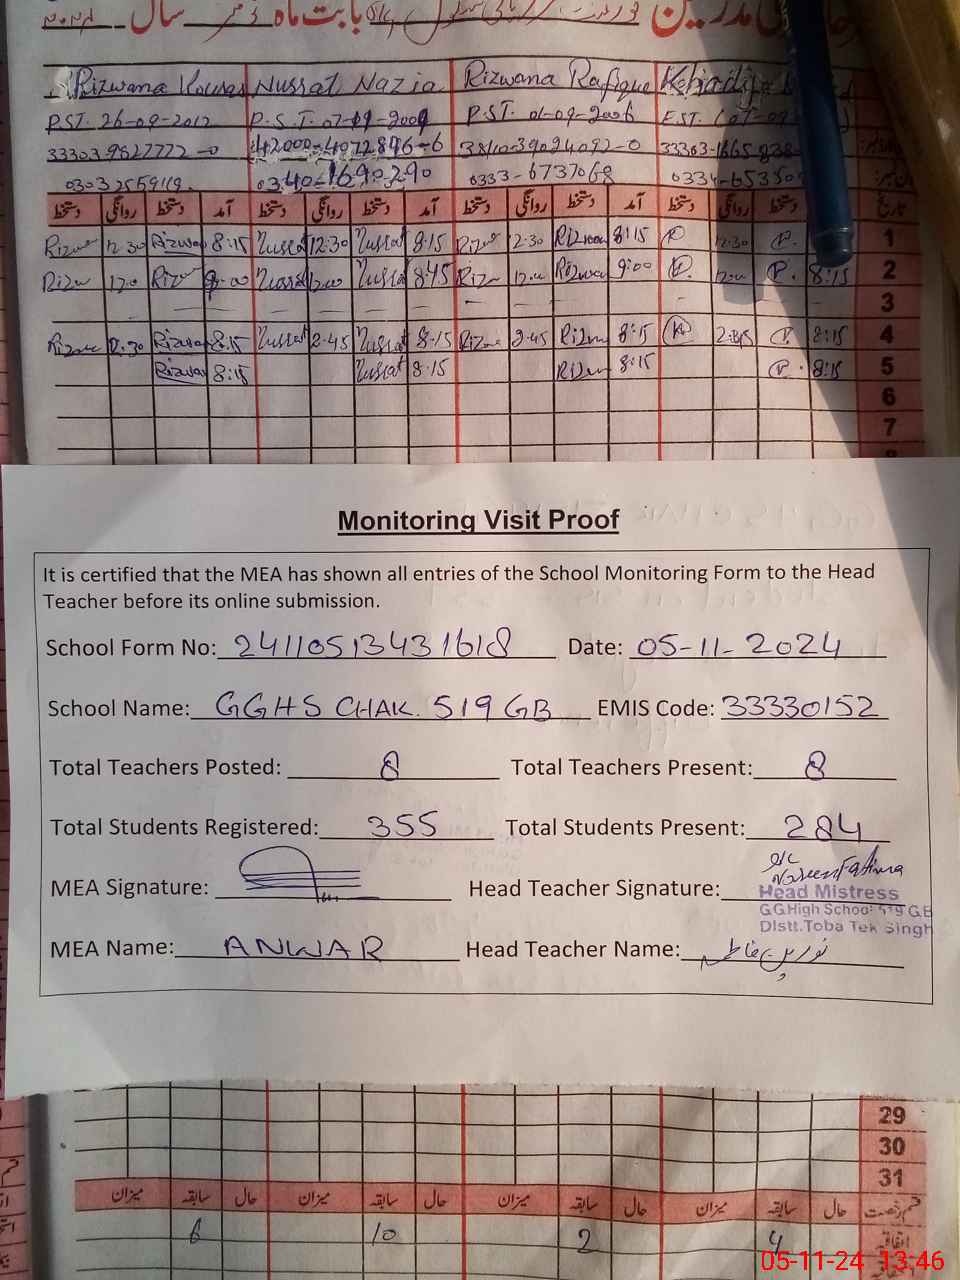 مدرسین
بابت ماہ
سال
Rizwana Kousar Nussrat Nazia Rizwana Rafique
P.S.T. 26-09-2012 P.S.T. 07-09-2009 P.S.T. 01-09-2006 E.S.T.
33303-9827772-0 42000-4072896-6 38110-39024092-0
03032559119 0340-1690290 0333-6737068
دستخط روانگی دستخط آمد دستخط روانگی دستخط آمد دستخط روانگی دستخط آمد دستخط روانگی دستخط تاریخ
12:30 8:15 Nussrat 12:30 Nussrat 8:15 12:30 8:15 12:30 P. 1
9:00 Nussrat Nussrat 8:45 12:00 9:00 P. 8:15 2
3
8:15 Nussrat 2:45 Nussrat 8:15 2:45 8:15 2:45 P. 8:15 4
8:15 Nussrat 8:15 8:15 P. 8:15 5
6
7
Monitoring Visit Proof
It is certified that the MEA has shown all entries of the School Monitoring Form to the Head
Teacher before its online submission.
School Form No: 2411051343 1618 Date: 05-11-2024
School Name: GGHS CHAK. 519 GB EMIS Code: 33330152
Total Teachers Posted: 8 Total Teachers Present: 8
Total Students Registered: 355 Total Students Present: 284
MEA Signature: Head Teacher Signature:
Head Mistress
G.G.High School 519 G.B
Distt.Toba Tek Singh
MEA Name: ANWAR Head Teacher Name: نورین فاطمہ
29
30
31
میزان سابقہ حال میزان سابقہ حال میزان سابقہ حال میزان سابقہ حال قسم رخصت
6 10 2 4 اتفاقیہ
05-11-24 13:46